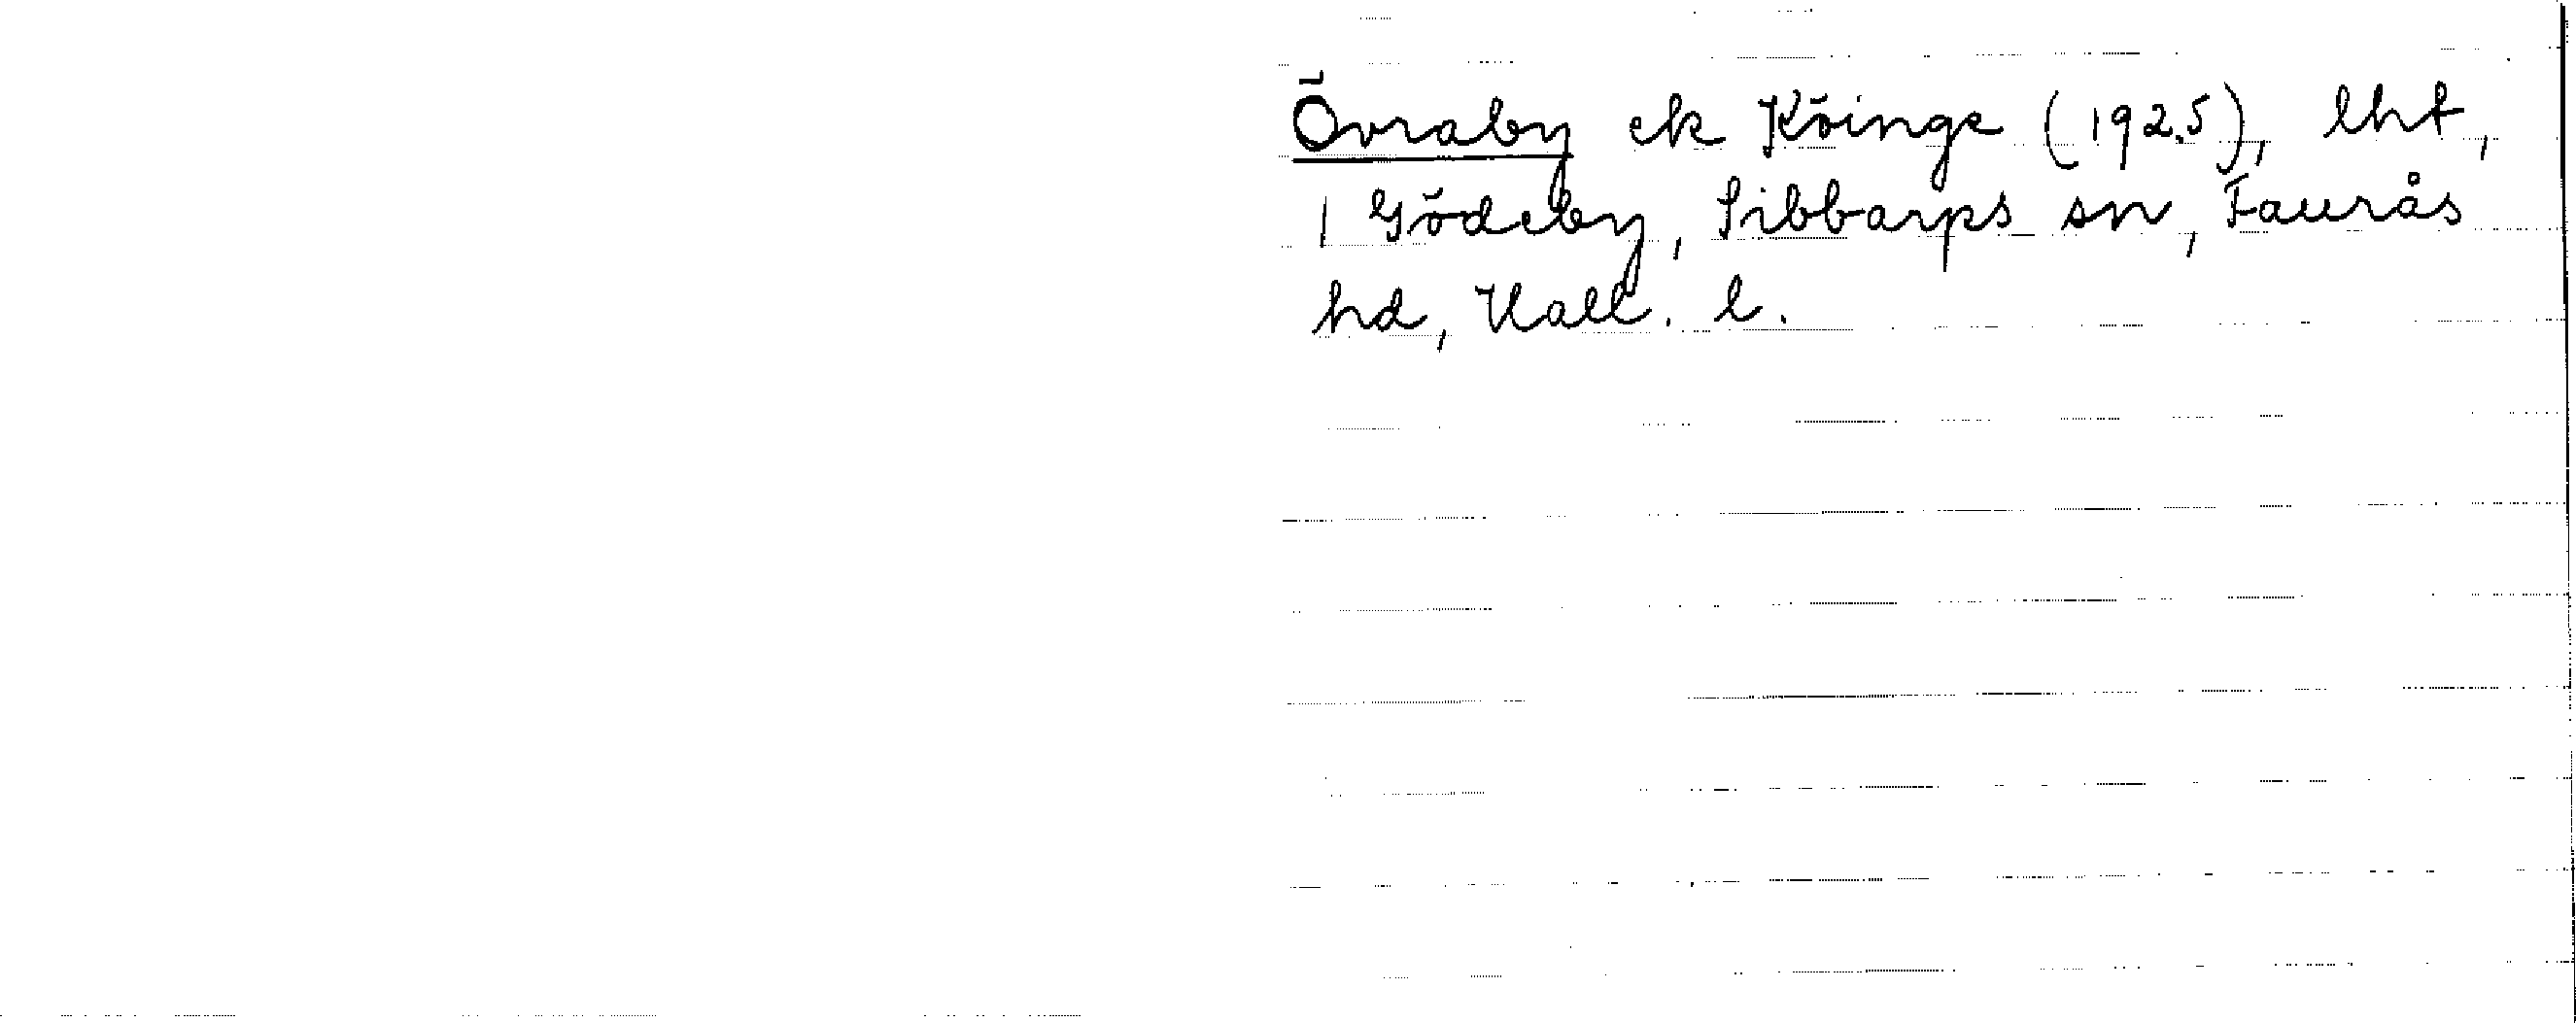 Övraby ek Köinge (1925), lht,
1 Gödeby, Sibbarps sn, Faurås
hd, Hall. l.